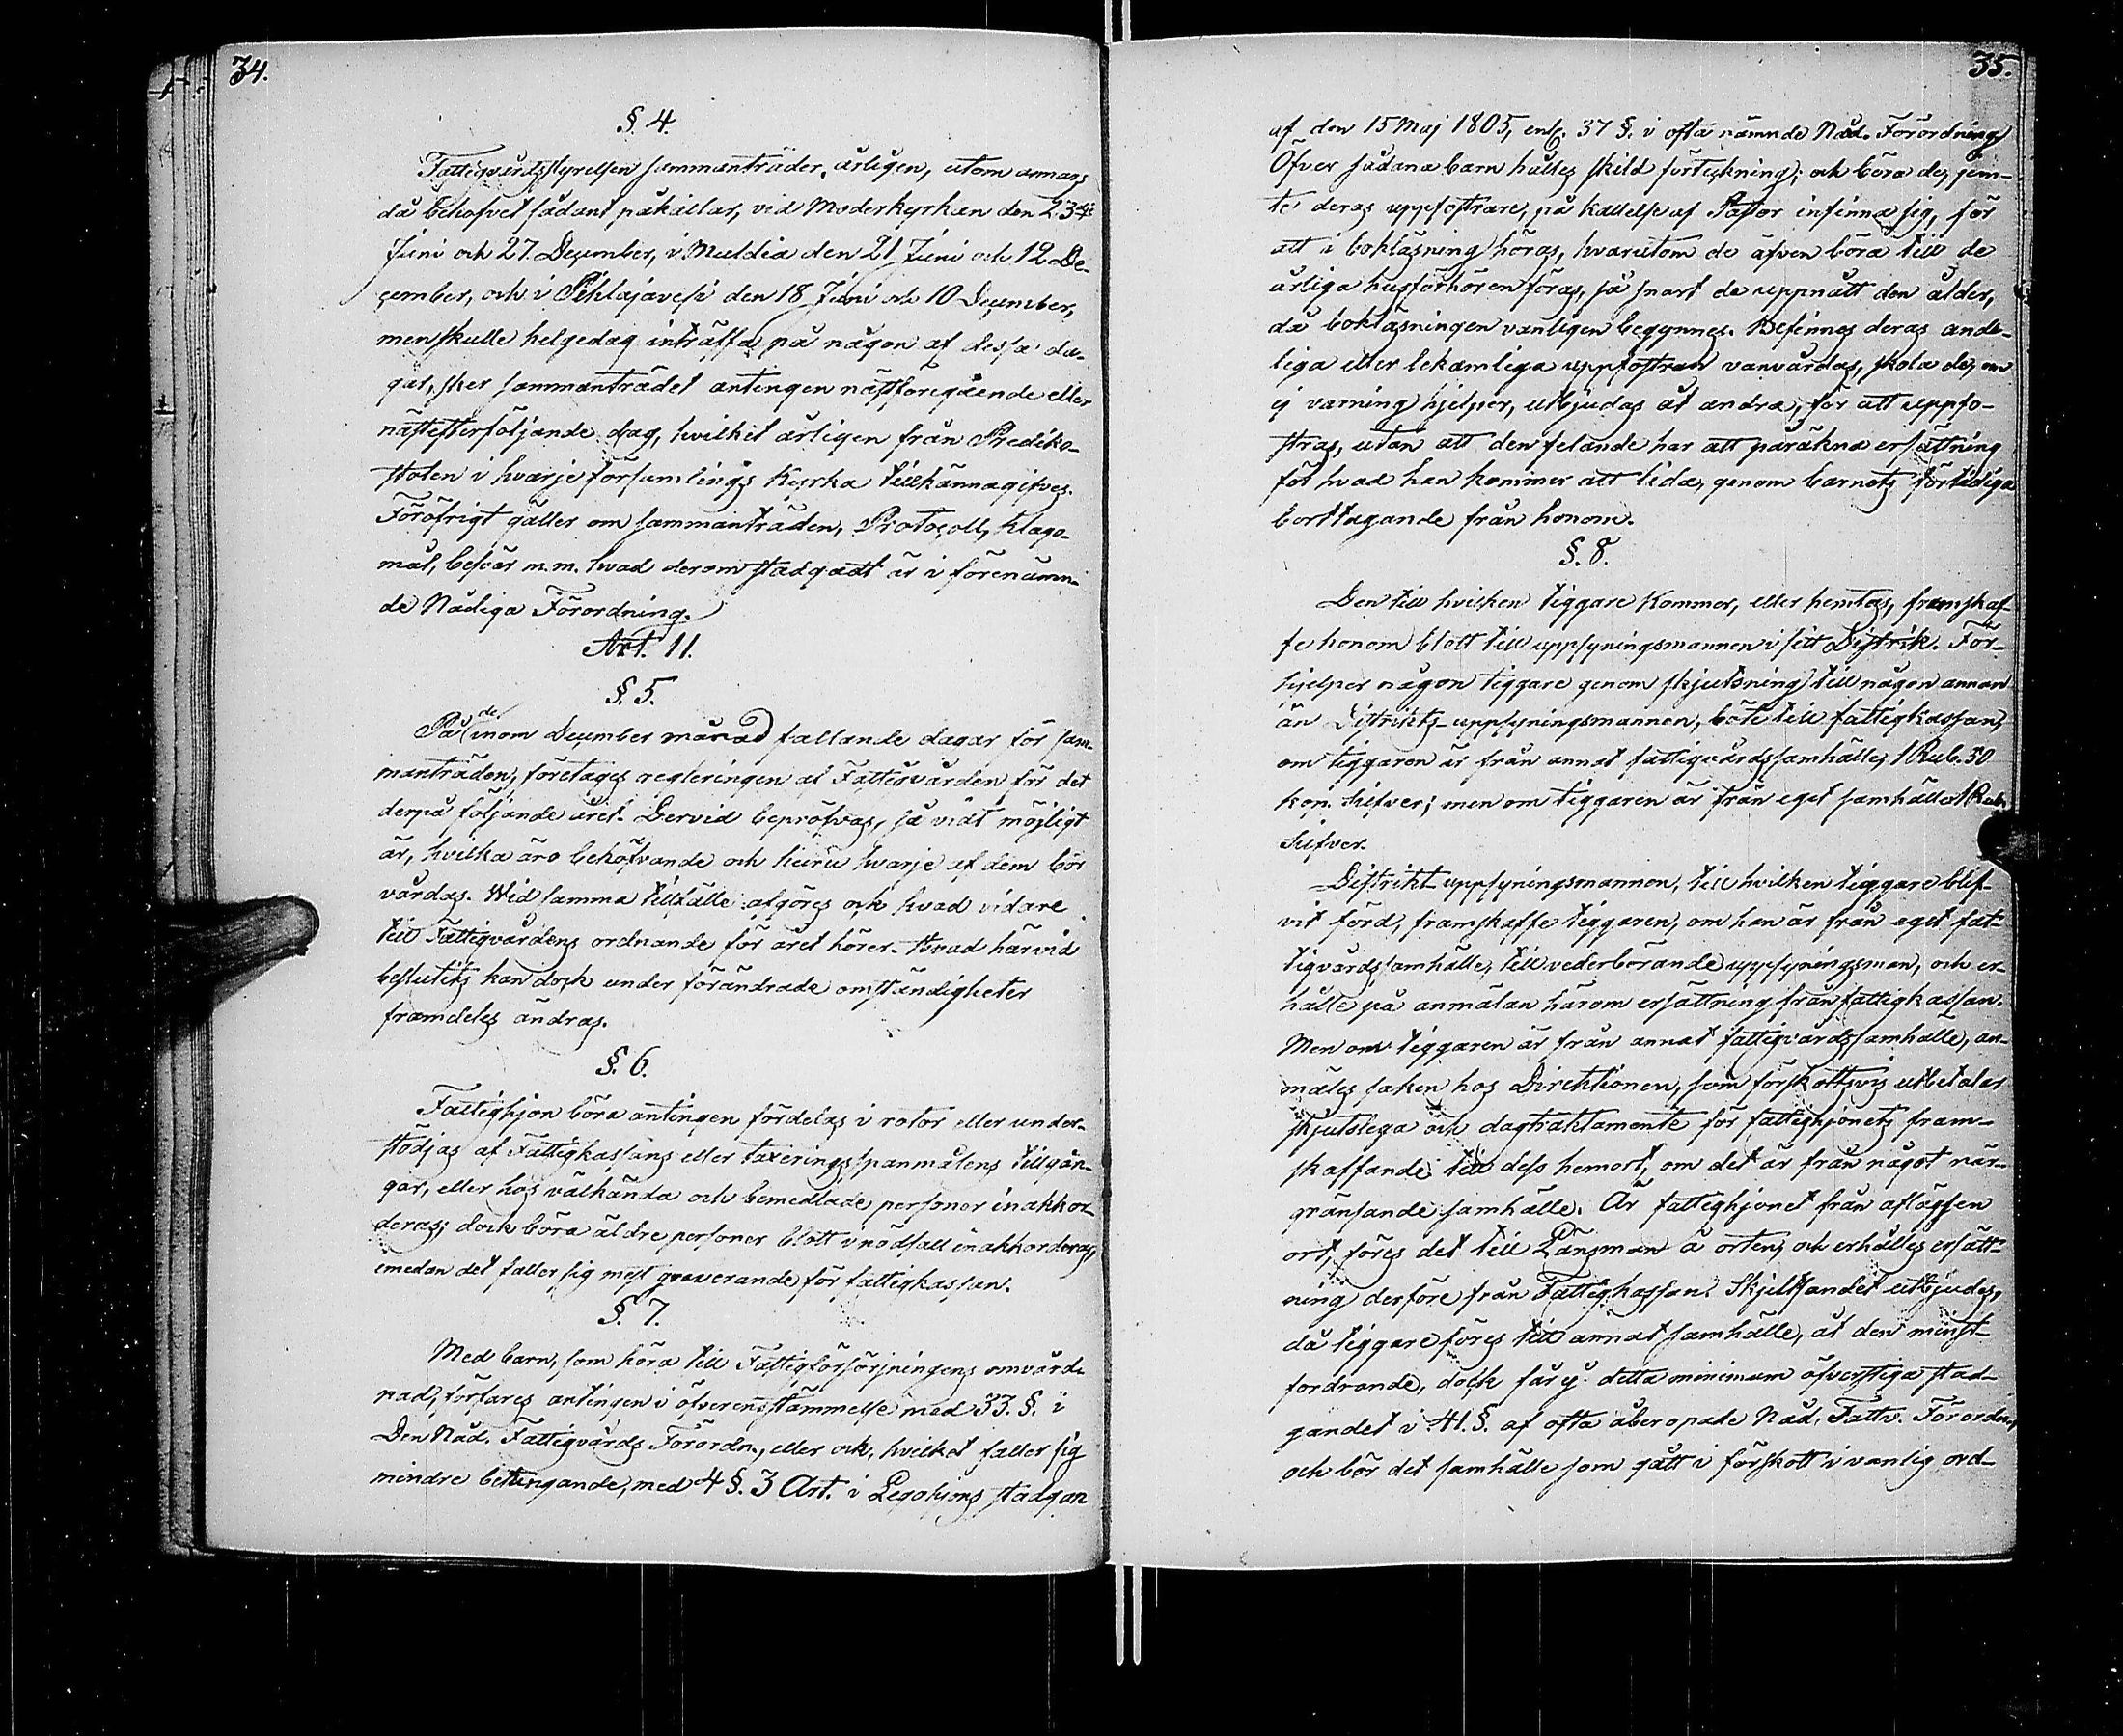 34.
§. 4.
Fattigvårdsstyrelsen sammanträder, årligen, utom annars
då behofvet sådant påkallar, vid Moderkyrkan den 23dje
Juni och 27. December, i Muldia den 21 Juni och 12 De-
cember, och i Pihlajavesi den 18 Juni och 10 December,
men skulle helgedag inträffa på någon af dessa da-
gar, sker sammanträdet antingen nästföregående eller
nästefterföljande dag, hvilket årligen från Prediko-
stolen i hvarje församlings Kyrka tillkännagifves.
Föröfrigt gäller om sammanträden, Protocoll, klago-
mål, besvär m. m. hvad derom stadgadt är i förenämn-
de Nådiga Förordning.
Art. 11.
§. 5.
På de inom December månad fallande dagar för sam-
manträden, företages regleringen af Fattigvården för det
derpå följande året. Dervid bepröfvas, så vidt möjligt
är, hvilka äro behöfvande och huru hvarje af dem bör
vårdas. Wid samma tillfälle afgöres och hvad vidare
till Fattigvårdens ordnande för året hörer. Hvad härvid
beslutits kan dock under förändrade omständigheter
framdeles ändras.
§. 6.
Fattighjon böra antingen fördelas i rotor eller under-
stödjas af Fattigkassans eller taxeringsspanmålens tillgån-
gar, eller hos välkända och bemedlade personer inackor-
deras; dock böra äldre personer blott i nödfall inakkorderas,
emedan det faller sig mest graverande för fattigkassan.
§. 7.
Med barn, som höra till Fattigförsörjningens omvård-
nad, förfares antingen i öfverensstämmelse med 33. §. i
Den Nåd. Fattigvårds Förordn., eller och, hvilket faller sig
mindre betungande, med 4 §. 3 Art. i Legohjons stadgan
35.
af den 15 Maj 1805, enl. 37 §. i ofta nämnde Nåd. Förordning
Öfver sådana barn hålles skild förteckning; och böra de, jem-
te deras uppfostrare, på kallelse af Pastor infinna sig, för
att i bokläsning höras, hvarutom de äfven böra till de
årliga husförhören föras, så snart de uppnått den ålder,
då bokläsningen vanligen begynnes. Befinnes deras ande-
liga eller lekamliga uppfostran vanvårdas, skola de, om
ej varning hjelper, utbjudas åt andra, för att uppfo-
stras, utan att den felande har att påräkna ersättning
för hvad han kommer att lida, genom barnets förtidiga
borttagande från honom.
§. 8.
Den till hvilken tiggare kommer, eller hemtas, framskaf-
fe honom blott till uppsyningsmannen i sitt Distrik. För-
hjelper någon tiggare genom skjutsning till någon annan
än Distrikts-uppsyningsmannen, böte till fattigkassan,
om tiggaren är från annat fattigvårdssamhälle, 1 Rub. 50
kop. Silfver; men om tiggaren är från eget samhälle 1 Rub.
Silfver.
Distrikt-uppsyningsmannen, till hvilken tiggare blif-
vit förd, framskaffe tiggaren, om han är från eget fat-
tigvårdssamhälle, till vederbörande uppsyningsman, och er-
hålle på anmälan härom ersättning från fattigkassan.
Men om tiggaren är från annat fattigvårdssamhälle, an-
mäles saken hos Direktionen, som förskottsvis utbetalar
skjutslega och dagtraktamente för fattighjonets fram-
skaffande till dess hemort, om det är från något när-
gränsande samhälle. Är fattighjonet från aflägsen
ort, föres det till Länsman å orten, och erhålles ersätt-
ning derföre från Fattigkassan. Skjutsandet utbjudes,
då tiggare föres till annat samhälle, åt den minst-
fordrande, dock får ej detta minimum öfverstiga stad-
gandet i 41. §. af ofta åberopade Nåd. Fattv. Förordn.,
och bör det samhälle som gått i förskott i vanlig ord-